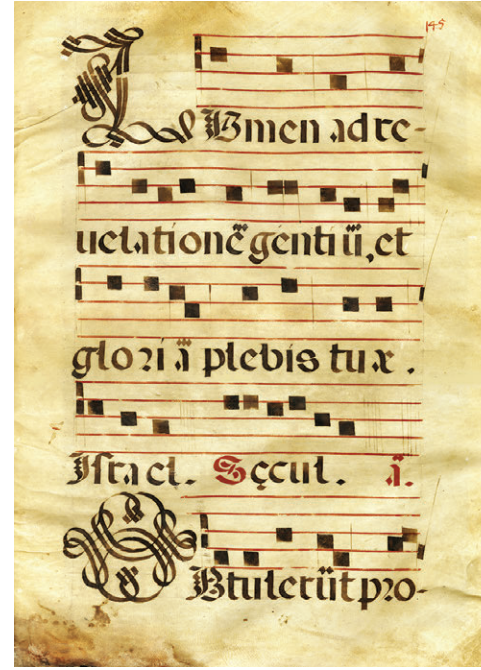 145
LVmen ad re-
uelationē gentiū, et
gloriā plebis tuæ .
Israel. Sęcul. ā.
OBtulerūt pro-